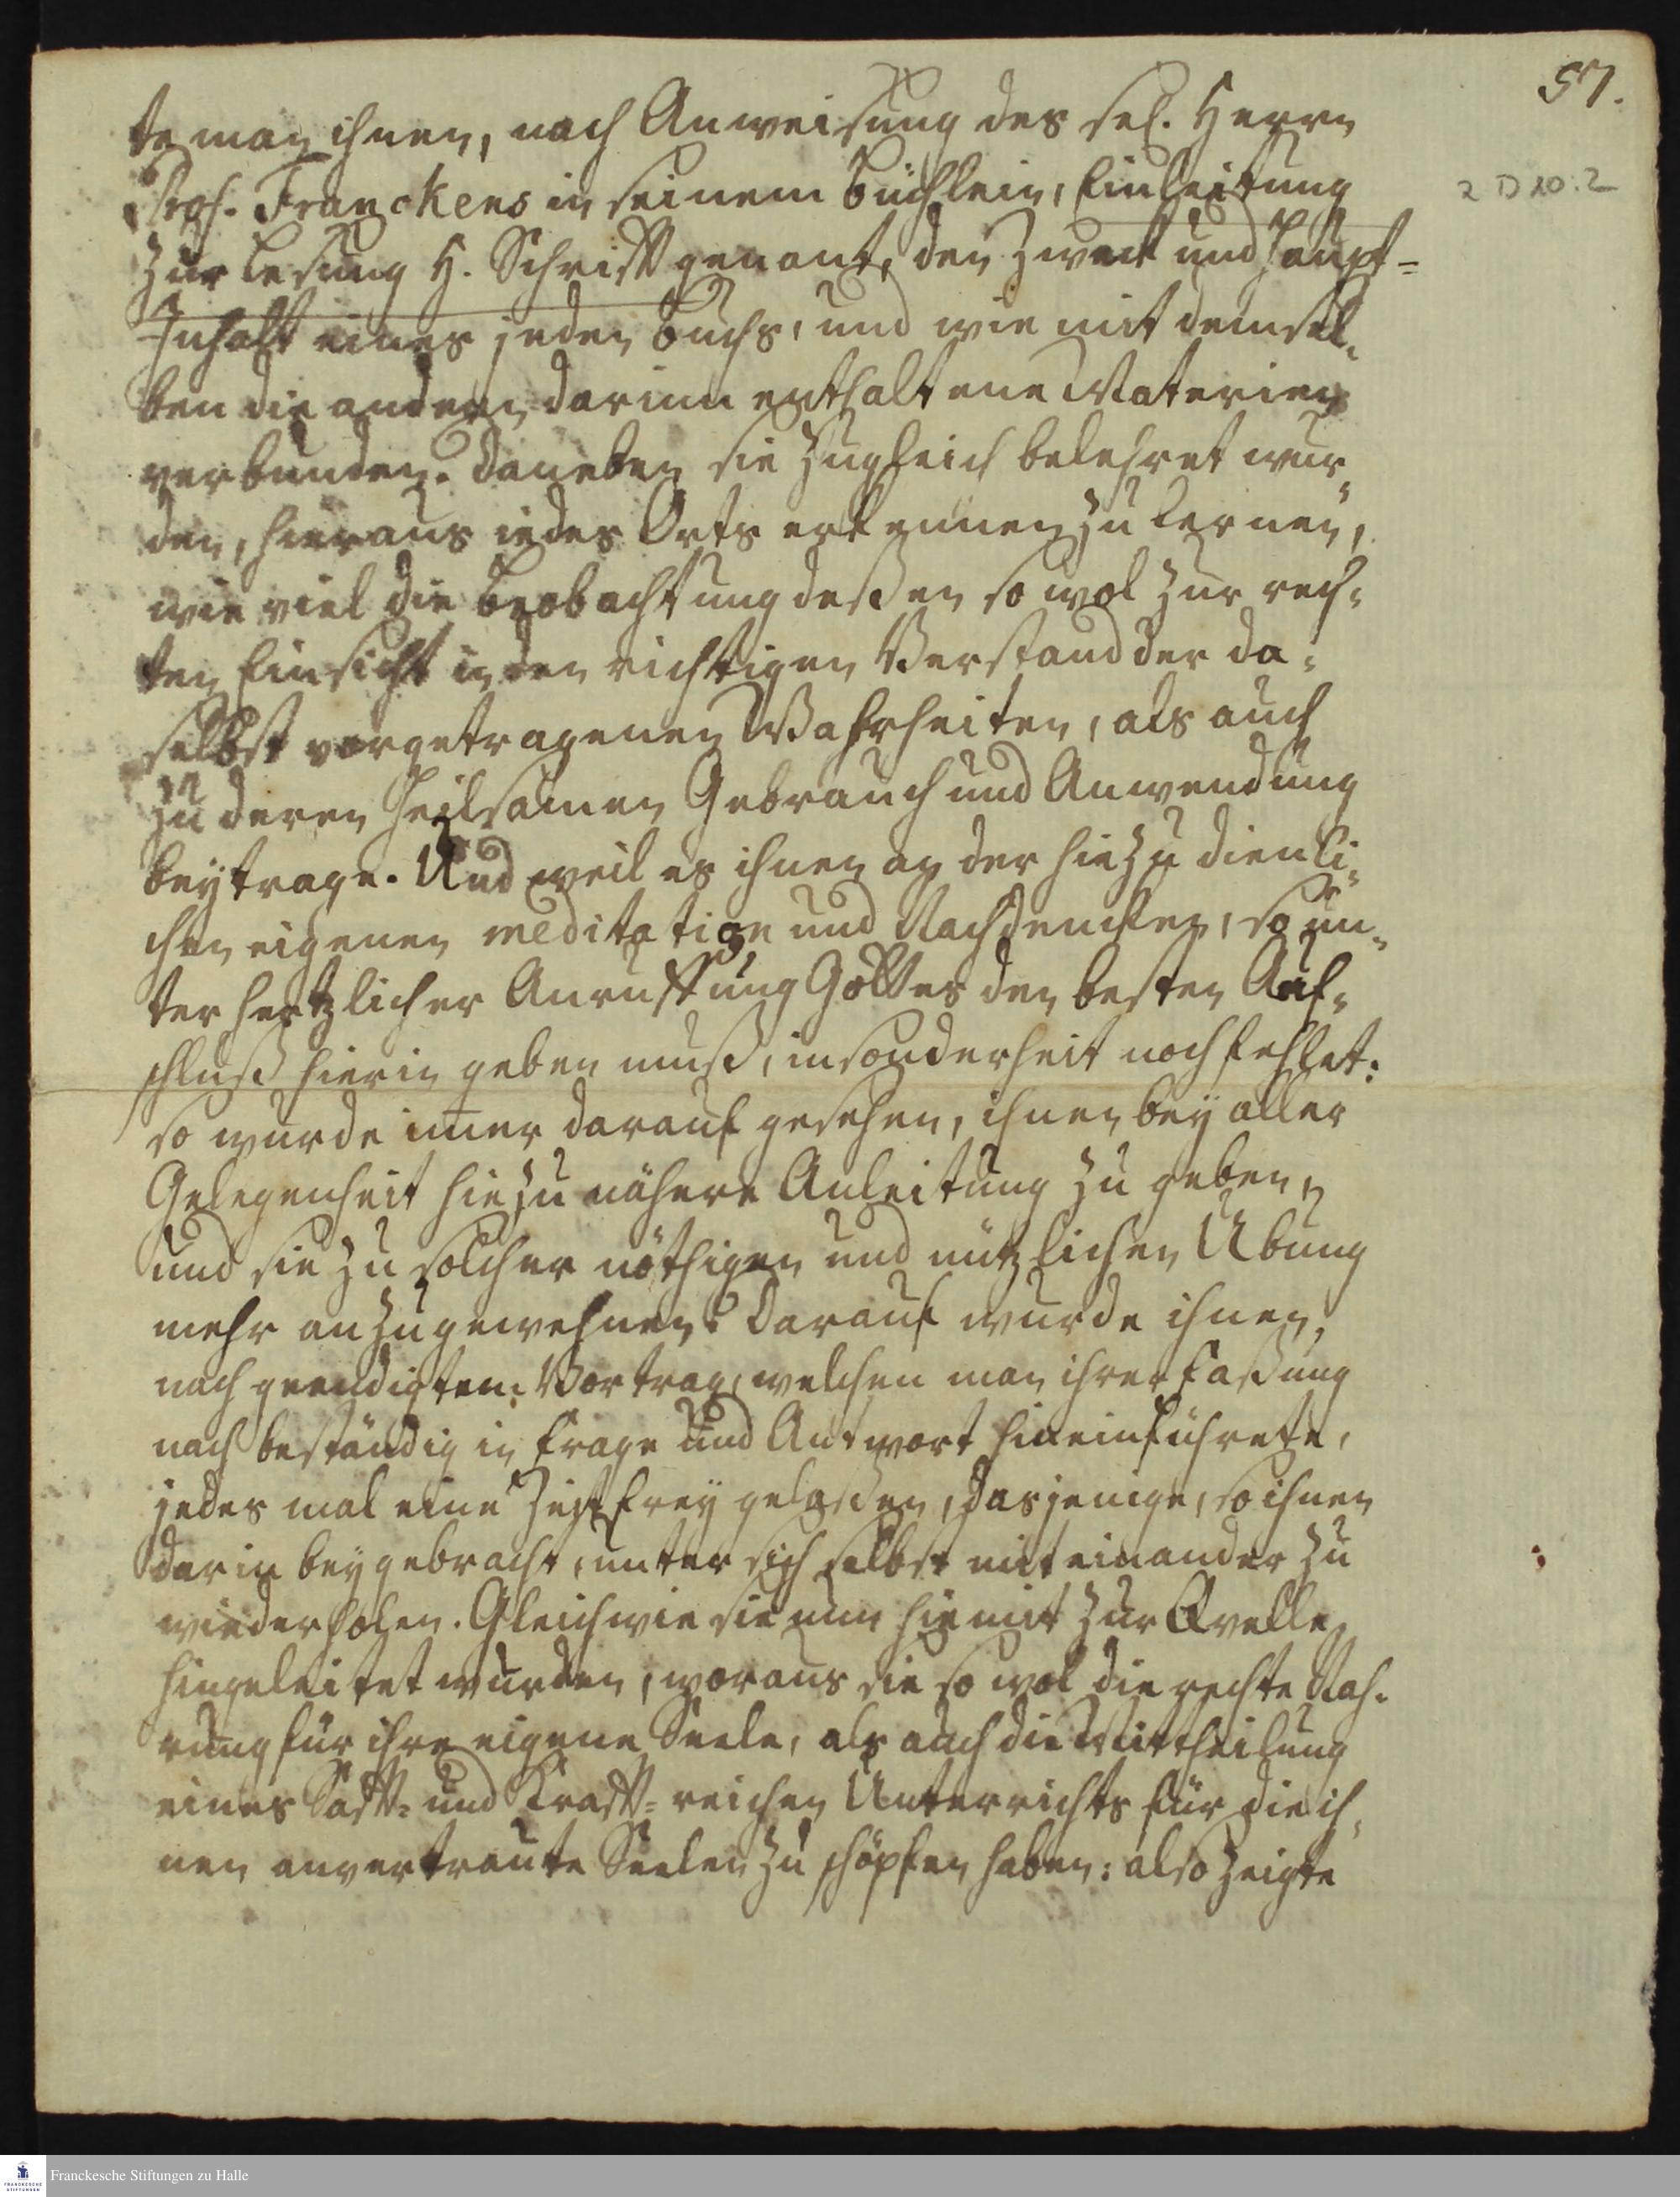 57.
2 D 10.2
te man ihnen, nach Anweisung des sel. Herrn
Prof. Franckens in seinem Büchlein, Einleitung
zur Lesung H. Schrifft genant, den Zweck und Haupt-
Inhalt eines jeden Buchs, und wie mit demsel-
ben die andern darinn enthaltene Materien
verbunden. Daneben sie zugleich belehret wur-
den, hieraus iedes Orts erkennen zu lernen,
wie viel die Beobachtung deßen so wol zur rech-
ten Einsicht in den richtigen Verstand der da-
selbst vorgetragenen Wahrheiten, als auch
zu deren heilsamen Gebrauch und Anwendung
beytrage. Und weil es ihnen an der hiezu dienli-
chen eigenen meditation und Nachdencken, so un-
ter hertzlicher Anruffung Gottes den besten Auf-
schluß hierin geben muß, insonderheit noch fehlet:
so wurde im̅er darauf gesehen, ihnen bey aller
Gelegenheit hiezu nähere Anleitung zu geben,
und sie zu solcher nöthigen und nützlichen Übung
mehr anzugewehnen. Darauf wurde ihnen,
nach geendigtem Vortrag, welchen man ihrer Faßung
nach beständig in Frage und Antwort hineinführete,
jedes mal eine Zeit frey gelaßen, dasjenige, so ihnen
darin beygebracht, unter sich selbst mit einander zu
wiederholen. Gleichwie sie nun hiemit zur Qvelle
hingeleitet wurden, woraus sie so wol die rechte Nah-
rung für ihre eigene Seele, als auch die Mittheilung
eines Safft- und Krafft-reichen Unterrichts für die ih-
nen anvertraute Seelen zu schöpfen haben: also zeigte
Franckesche Stiftungen zu Halle
FRANCKESCHE STIFTUNGEN